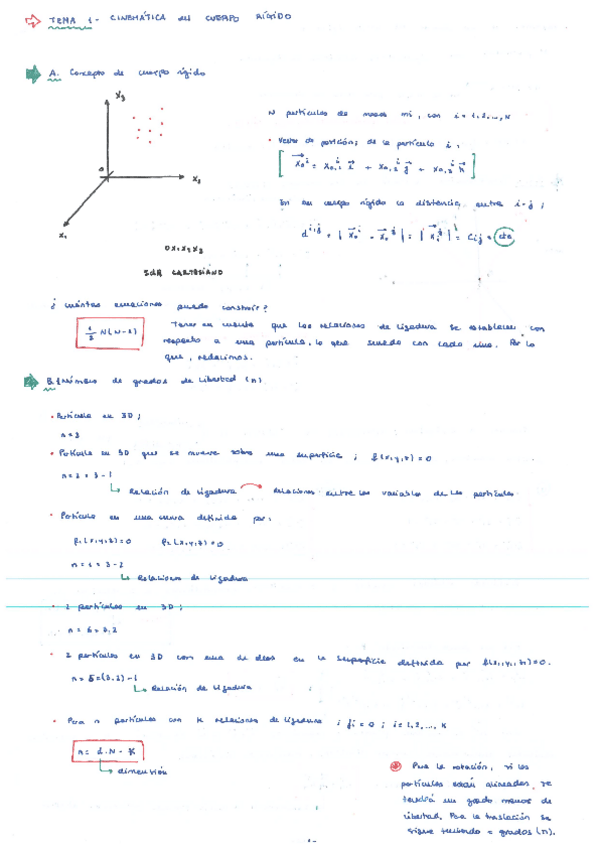 TEMA 1 - CINEMÁTICA del CUERPO RÍGIDO
A. Concepto de cuerpo rígido
X3
N partículas de masas mi, con i = 1, 2, ..., N
• Vector de posición; de la partícula i:
O
X2
En un cuerpo rígido la distancia entre i-j;
X1
= Cij = cte
OX1X2X3
SdR CARTESIANO
¿Cuántas ecuaciones puedo construir?
1/2 N(N-1)
Tener en cuenta que las relaciones de ligadura se establecen con
respecto a una partícula, lo que sucede con cada una. Por lo
que, reducimos.
B. Número de grados de libertad (n)
• Partícula en 3D;
n=3
• Partícula en 3D que se mueve sobre una superficie; f(x,y,z)=0
n=2=3-1
Relación de ligadura Relaciones entre las variables de las partículas
• Partícula en una curva definida por:
f1(x,y,z)=0 f2(x,y,z)=0
n=1=3-2
Relaciones de ligadura
• 2 partículas en 3D;
n=6=3.2
• 2 partículas en 3D con una de ellas en la superficie definida por
n=5=(3.2)-1
Relación de ligadura
• Para n partículas con K relaciones de ligadura; fi=0; i=1,2,...,K
n= d.N-K
dimensión
Para la rotación, si las
partículas están alineadas, se
tendrá un grado menos de
libertad. Para la traslación se
sigue teniendo = grados (n).